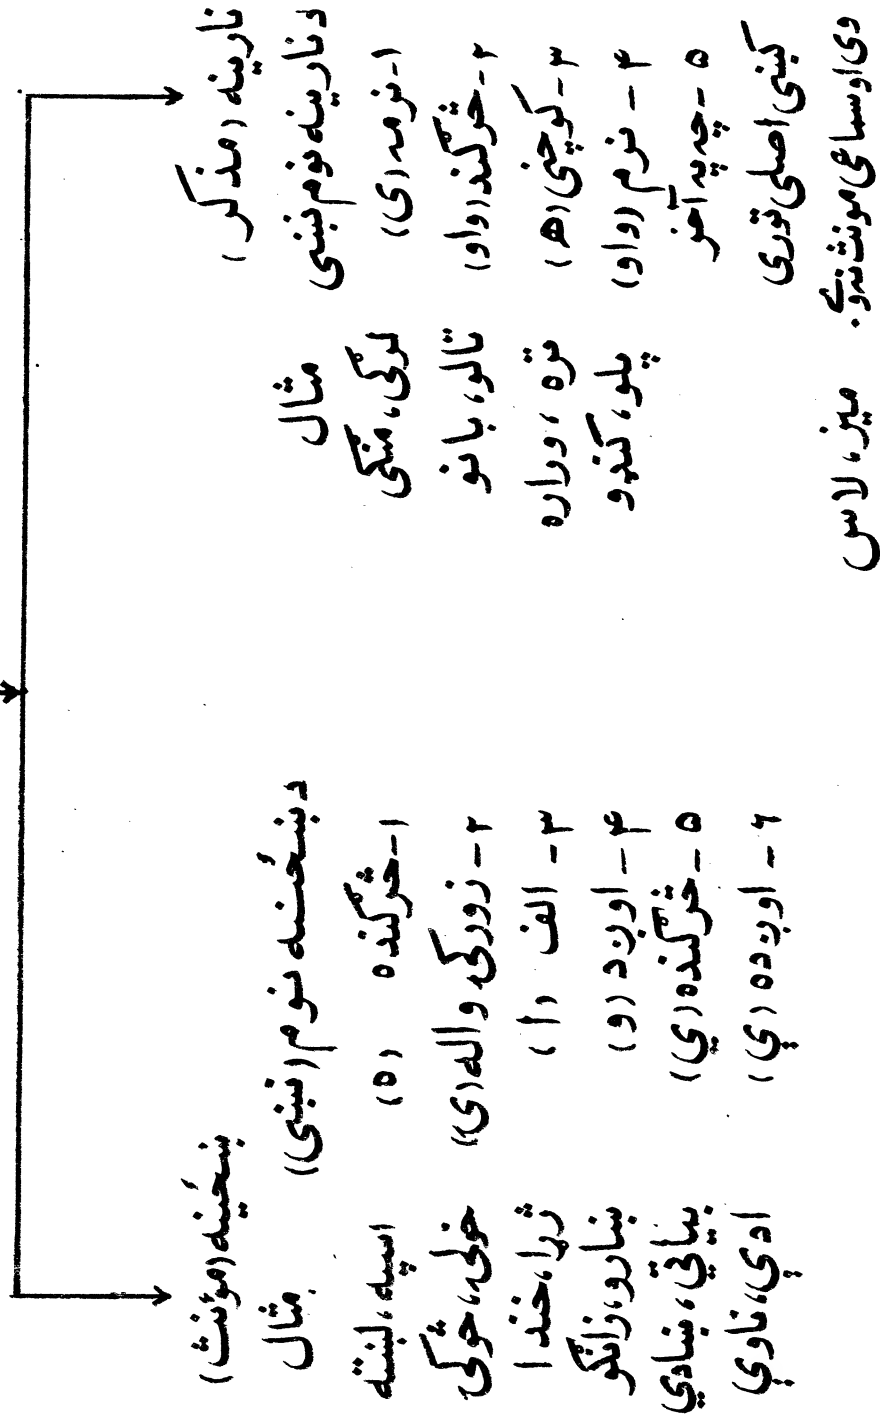 نارینه (مذکر)
د نارینه نوم نښی مثال
۱- نرمه (ی) لرګی، منګی
۲- څرګند (واو) تالو، بانو
۳- کوچنی (ه) تره، وراره
۴- نرم (واو) پلو، کنډو
۵- چه په آخر
کښی اصلی توری
وی او سماعی مونث نه وي. میز، لاس
ښځینه (مؤنث)
د ښځینه نوم (نښی) مثال
۱- څرګنده (ه) اسپه، لښته
۲- زورکی واله (ۍ) خولۍ، څوکۍ
۳- الف (ا) ژړا، خندا
۴- اوږد (و) ښارو، زانګو
۵- څرګنده (ي) بیاتي، ښادي
۶- اوږده (ې) ادې، ناوې